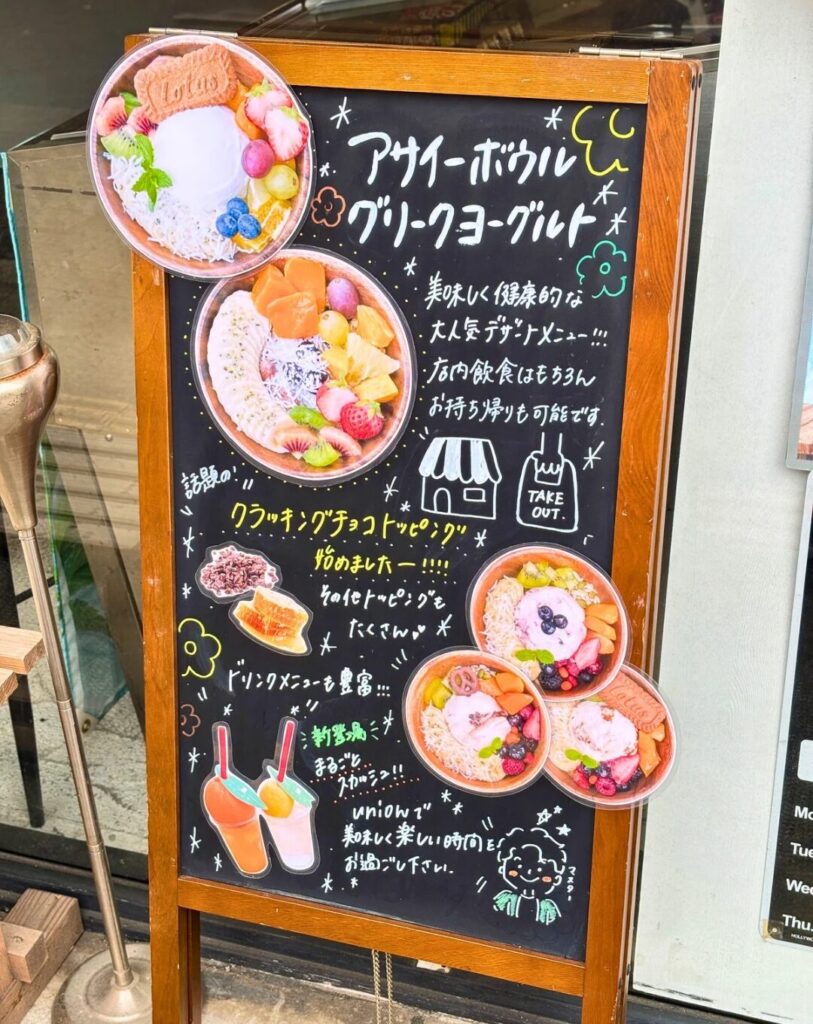 Lotus
アサイーボウル
グリークヨーグルト
美味しく健康的な
大人気デザートメニュー!!!
店内飲食はもちろん
お持ち帰りも可能です.
TAKE
OUT.
話題の!!
クラッキングチョコトッピング
始めましたー!!!!
その他トッピングも
たくさん♥
ドリンクメニューも豊富!!!
新登場
まるごと
スカッシュ!!
unionで
美味しく楽しい時間を
お過ごし下さい.
マスター
Mo
Tue
Wed
Thu.